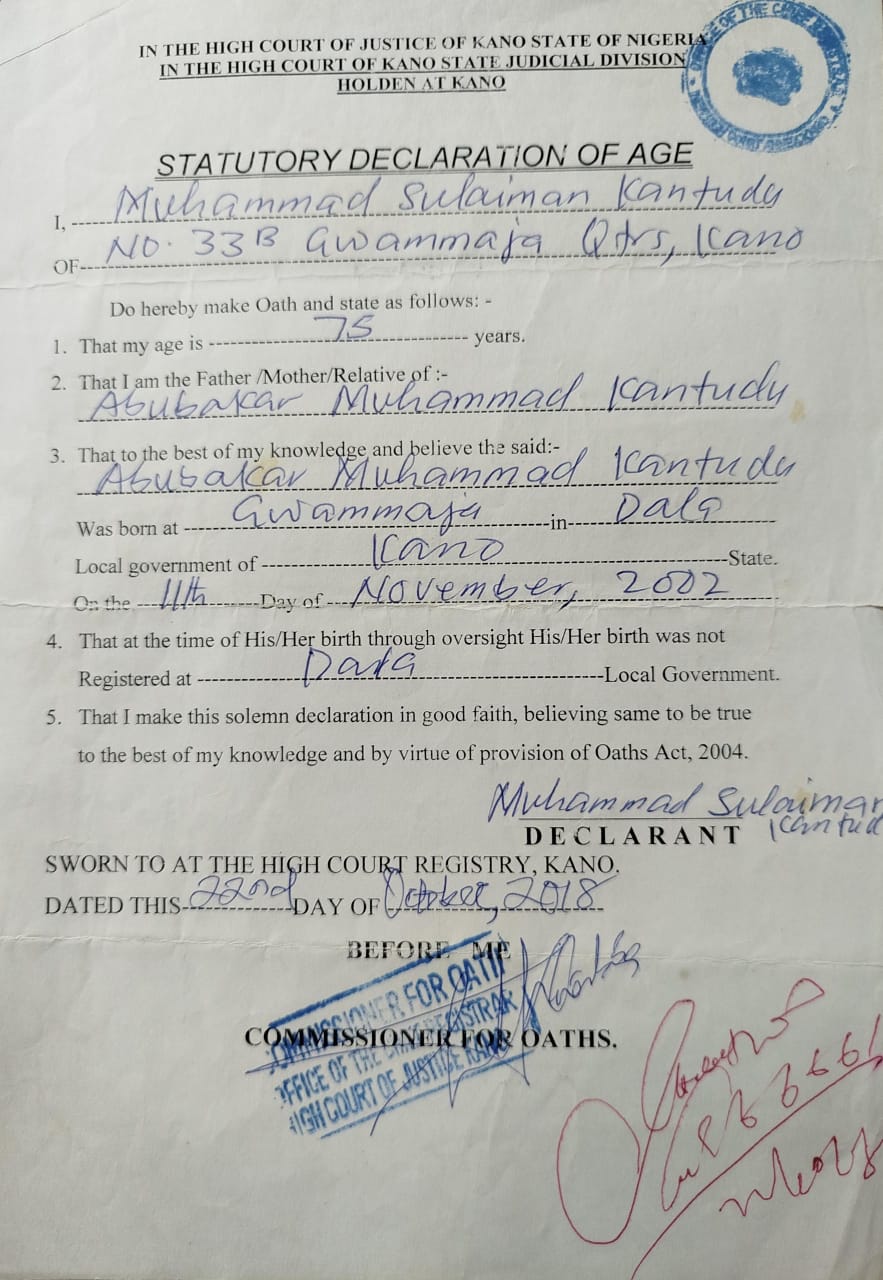 IN THE HIGH COURT OF JUSTICE OF KANO STATE OF NIGERIA
IN THE HIGH COURT OF KANO STATE JUDICIAL DIVISION
HOLDEN AT KANO
STATUTORY DECLARATION OF AGE
I, Muhammad Sulaiman Kantudu
OF No. 33B Gwammaja Qtrs, Kano
Do hereby make Oath and state as follows: -
1. That my age is 75 years.
2. That I am the Father /Mother/Relative of :-
Abubakar Muhammad Kantudu
3. That to the best of my knowledge and believe the said:-
Abubakar Muhammad Kantudu
Was born at Gwammaja in Dala
Local government of Kano State.
On the 11th Day of November, 2002
4. That at the time of His/Her birth through oversight His/Her birth was not
Registered at Dala Local Government.
5. That I make this solemn declaration in good faith, believing same to be true
to the best of my knowledge and by virtue of provision of Oaths Act, 2004.
Muhammad Sulaiman
Kantud
DECLARANT
SWORN TO AT THE HIGH COURT REGISTRY, KANO.
DATED THIS 22nd DAY OF October, 2018
BEFORE ME
COMMISSIONER FOR OATHS.
COMMISSIONER FOR OATH
OFFICE OF THE CHIEF REGISTRAR
HIGH COURT OF JUSTICE KANO